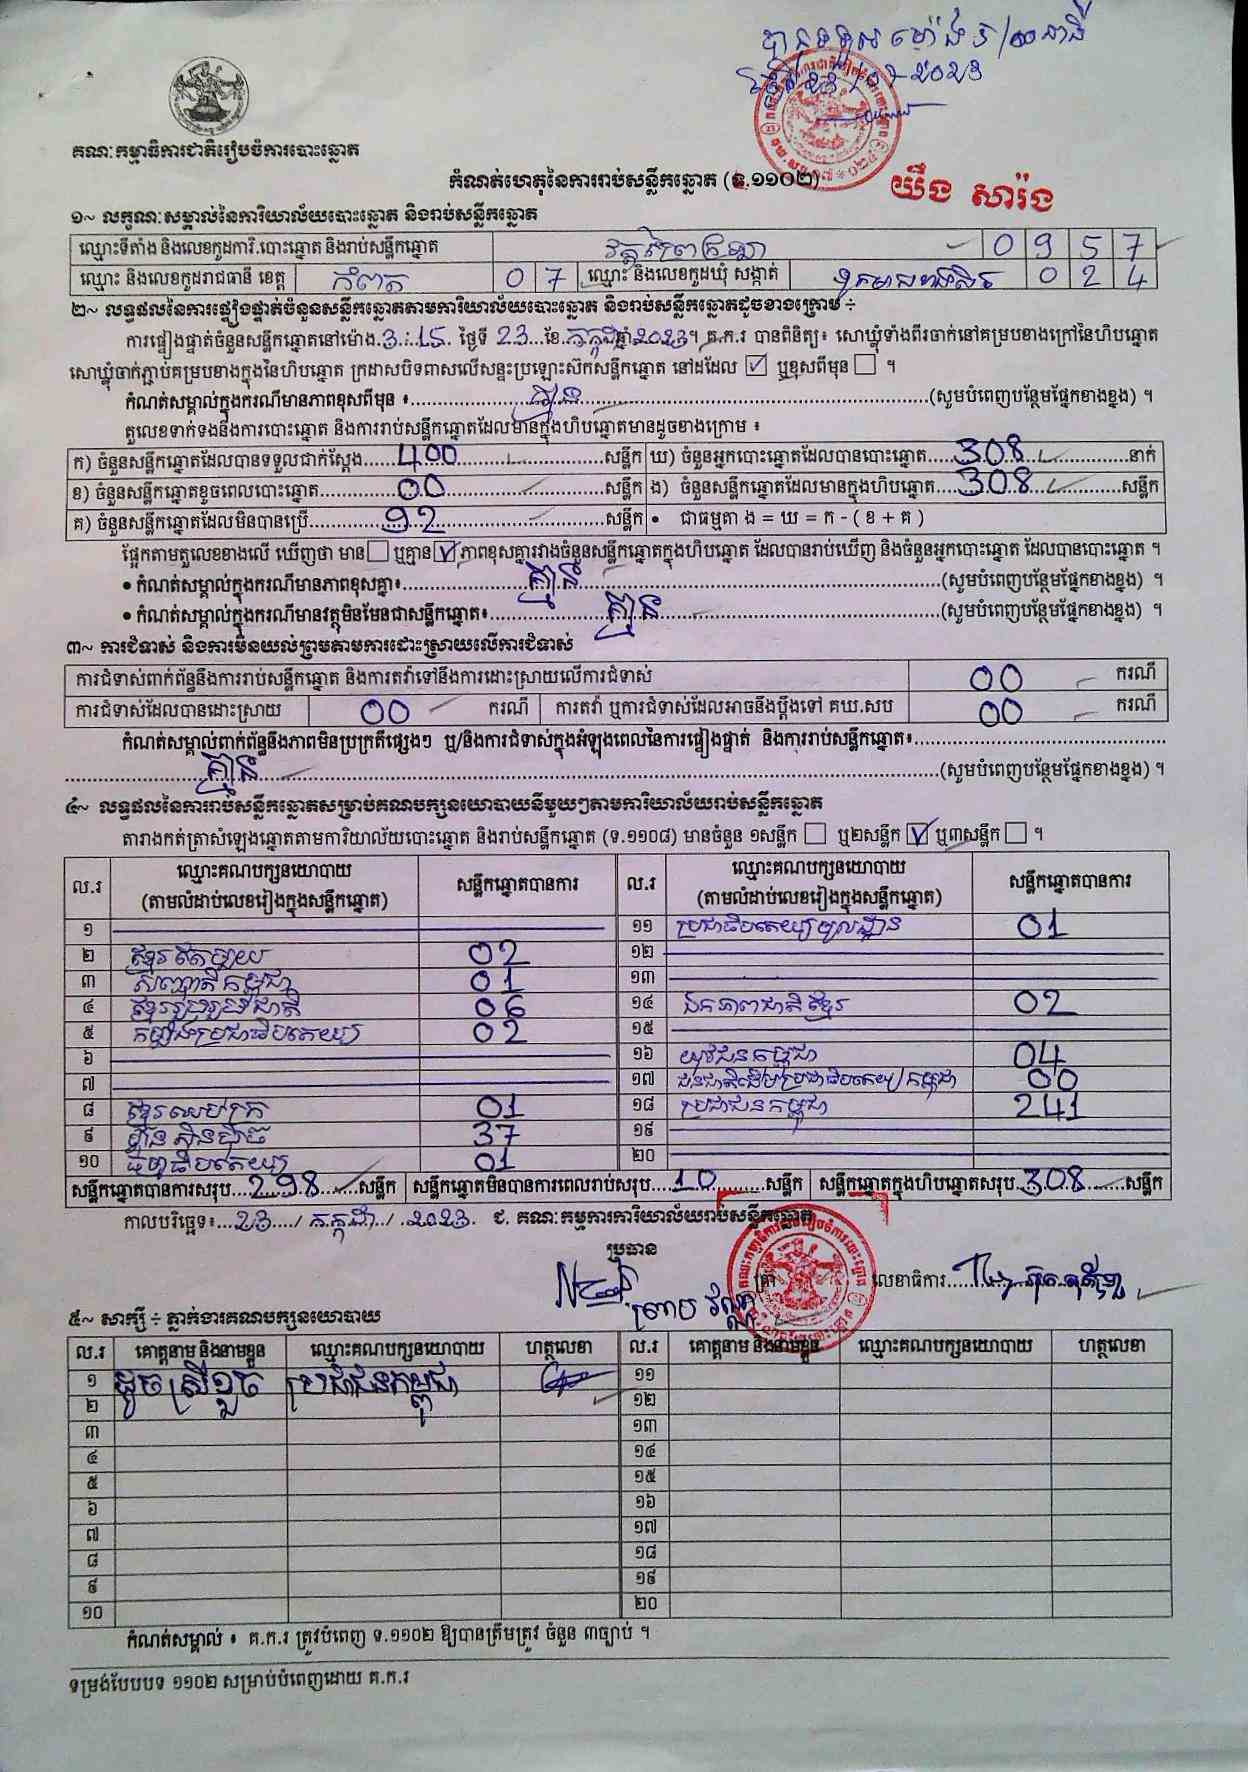 បានទទួល ម៉ោង
គណៈកម្មាធិការជាតិរៀបចំការបោះឆ្នោត
កំណត់ហេតុនៃការរាប់សន្លឹកឆ្នោត (ទ.១១០២)
យឹង សារ៉ង
១~ លក្ខណៈសម្គាល់នៃការិយាល័យបោះឆ្នោត និងរាប់សន្លឹកឆ្នោត
ឈ្មោះទីតាំង និងលេខកូដការិ.បោះឆ្នោត និងរាប់សន្លឹកឆ្នោត 0 9 5 7
ឈ្មោះ និងលេខកូដរាជធានី ខេត្ត កំពត 0 7 ឈ្មោះ និងលេខកូដឃុំ សង្កាត់ 0 2 4
២~ លទ្ធផលនៃការផ្ទៀងផ្ទាត់ចំនួនសន្លឹកឆ្នោតតាមការិយាល័យបោះឆ្នោត និងរាប់សន្លឹកឆ្នោតដូចខាងក្រោម ÷
ការផ្ទៀងផ្ទាត់ចំនួនសន្លឹកឆ្នោតនៅម៉ោង.3:15. ថ្ងៃទី 23 ...ខែ.កក្កដាឆ្នាំ2023។ គ.ក.រ បានពិនិត្យ៖ សោឃ្លុំទាំងពីរចាក់នៅគម្របខាងក្រៅនៃហិបឆ្នោត
សោឃ្លុំចាក់ភ្ជាប់គម្របខាងក្នុងនៃហិបឆ្នោត ក្រដាសបិទពាសលើសន្ទះប្រឡោះស៊កសន្លឹកឆ្នោត នៅដដែល ☑ ឬខុសពីមុន ☐ ។
កំណត់សម្គាល់ក្នុងករណីមានភាពខុសពីមុន ៖ គ្មាន (សូមបំពេញបន្ថែមផ្នែកខាងខ្នង) ។
តួលេខទាក់ទងនឹងការបោះឆ្នោត និងការរាប់សន្លឹកឆ្នោតដែលមានក្នុងហិបឆ្នោតមានដូចខាងក្រោម ៖
ក) ចំនួនសន្លឹកឆ្នោតដែលបានទទួលជាក់ស្តែង 400 សន្លឹក ឃ) ចំនួនអ្នកបោះឆ្នោតដែលបានបោះឆ្នោត 308 នាក់
ខ) ចំនួនសន្លឹកឆ្នោតខូចពេលបោះឆ្នោត 00 សន្លឹក ង) ចំនួនសន្លឹកឆ្នោតដែលមានក្នុងហិបឆ្នោត 308 សន្លឹក
គ) ចំនួនសន្លឹកឆ្នោតដែលមិនបានប្រើ 92 សន្លឹក • ជាធម្មតា ង = ឃ = ក - ( ខ + គ )
ផ្អែកតាមតួលេខខាងលើ ឃើញថា មាន ☐ ឬគ្មាន ☑ ភាពខុសគ្នារវាងចំនួនសន្លឹកឆ្នោតក្នុងហិបឆ្នោត ដែលបានរាប់ឃើញ និងចំនួនអ្នកបោះឆ្នោត ដែលបានបោះឆ្នោត ។
• កំណត់សម្គាល់ក្នុងករណីមានភាពខុសគ្នា៖ គ្មាន (សូមបំពេញបន្ថែមផ្នែកខាងខ្នង) ។
• កំណត់សម្គាល់ក្នុងករណីមានវត្ថុមិនមែនជាសន្លឹកឆ្នោត៖ គ្មាន (សូមបំពេញបន្ថែមផ្នែកខាងខ្នង) ។
៣~ ការជំទាស់ និងការមិនយល់ព្រមតាមការដោះស្រាយលើការជំទាស់
ការជំទាស់ពាក់ព័ន្ធនឹងការរាប់សន្លឹកឆ្នោត និងការតវ៉ាទៅនឹងការដោះស្រាយលើការជំទាស់ 00 ករណី
ការជំទាស់ដែលបានដោះស្រាយ 00 ករណី ការតវ៉ា ឬការជំទាស់ដែលអាចនឹងប្តឹងទៅ គឃ.សប 00 ករណី
កំណត់សម្គាល់ពាក់ព័ន្ធនឹងភាពមិនប្រក្រតីផ្សេងៗ ឬ/និងការជំទាស់ក្នុងអំឡុងពេលនៃការផ្ទៀងផ្ទាត់ និងការរាប់សន្លឹកឆ្នោត៖
គ្មាន (សូមបំពេញបន្ថែមផ្នែកខាងខ្នង) ។
៤~ លទ្ធផលនៃការរាប់សន្លឹកឆ្នោតសម្រាប់គណបក្សនយោបាយនីមួយៗតាមការិយាល័យរាប់សន្លឹកឆ្នោត
តារាងកត់ត្រាសំឡេងឆ្នោតតាមការិយាល័យបោះឆ្នោត និងរាប់សន្លឹកឆ្នោត (ទ.១១០៨) មានចំនួន ១សន្លឹក ☐ ឬ២សន្លឹក ☑ ឬ៣សន្លឹក ☐ ។
ល.រ ឈ្មោះគណបក្សនយោបាយ (តាមលំដាប់លេខរៀងក្នុងសន្លឹកឆ្នោត) សន្លឹកឆ្នោតបានការ ល.រ ឈ្មោះគណបក្សនយោបាយ (តាមលំដាប់លេខរៀងក្នុងសន្លឹកឆ្នោត) សន្លឹកឆ្នោតបានការ
១ ១១ ប្រជាធិបតេយ្យមូលដ្ឋាន 01
២ ខ្មែរតែមួយ 02 ១២
៣ សញ្ជាតិកម្ពុជា 01 ១៣
៤ ខ្មែររួបរួមជាតិ 06 ១៤ ឯកភាពជាតិខ្មែរ 02
៥ កម្លាំងប្រជាធិបតេយ្យ 02 ១៥
៦ ១៦ យុវជនកម្ពុជា 04
៧ ១៧ ជនជាតិដើមប្រជាធិបតេយ្យកម្ពុជា 00
៨ ខ្មែរឈប់ក្រ 01 ១៨ ប្រជាជនកម្ពុជា 241
៩ ហ៊្វុនស៊ិនប៉ិច 37 ១៩
១០ ធម្មាធិបតេយ្យ 01 ២០
សន្លឹកឆ្នោតបានការសរុប 298 សន្លឹក សន្លឹកឆ្នោតមិនបានការពេលរាប់សរុប 10 សន្លឹក សន្លឹកឆ្នោតក្នុងហិបឆ្នោតសរុប 308 សន្លឹក
កាលបរិច្ឆេទ៖ 23 / កក្កដា / 2023 ជ. គណៈកម្មការការិយាល័យរាប់សន្លឹកឆ្នោត
ប្រធាន
ត្រា លេខាធិការ
៥~ សាក្សី ÷ ភ្នាក់ងារគណបក្សនយោបាយ
ល.រ គោត្តនាម និងនាមខ្លួន ឈ្មោះគណបក្សនយោបាយ ហត្ថលេខា ល.រ គោត្តនាម និងនាមខ្លួន ឈ្មោះគណបក្សនយោបាយ ហត្ថលេខា
១ ដូច ស្រីខួច ប្រជាជនកម្ពុជា ១១
២ ១២
៣ ១៣
៤ ១៤
៥ ១៥
៦ ១៦
៧ ១៧
៨ ១៨
៩ ១៩
១០ ២០
កំណត់សម្គាល់ ៖ គ.ក.រ ត្រូវបំពេញ ទ.១១០២ ឱ្យបានត្រឹមត្រូវ ចំនួន ៣ច្បាប់ ។
ទម្រង់បែបបទ ១១០២ សម្រាប់បំពេញដោយ គ.ក.រ